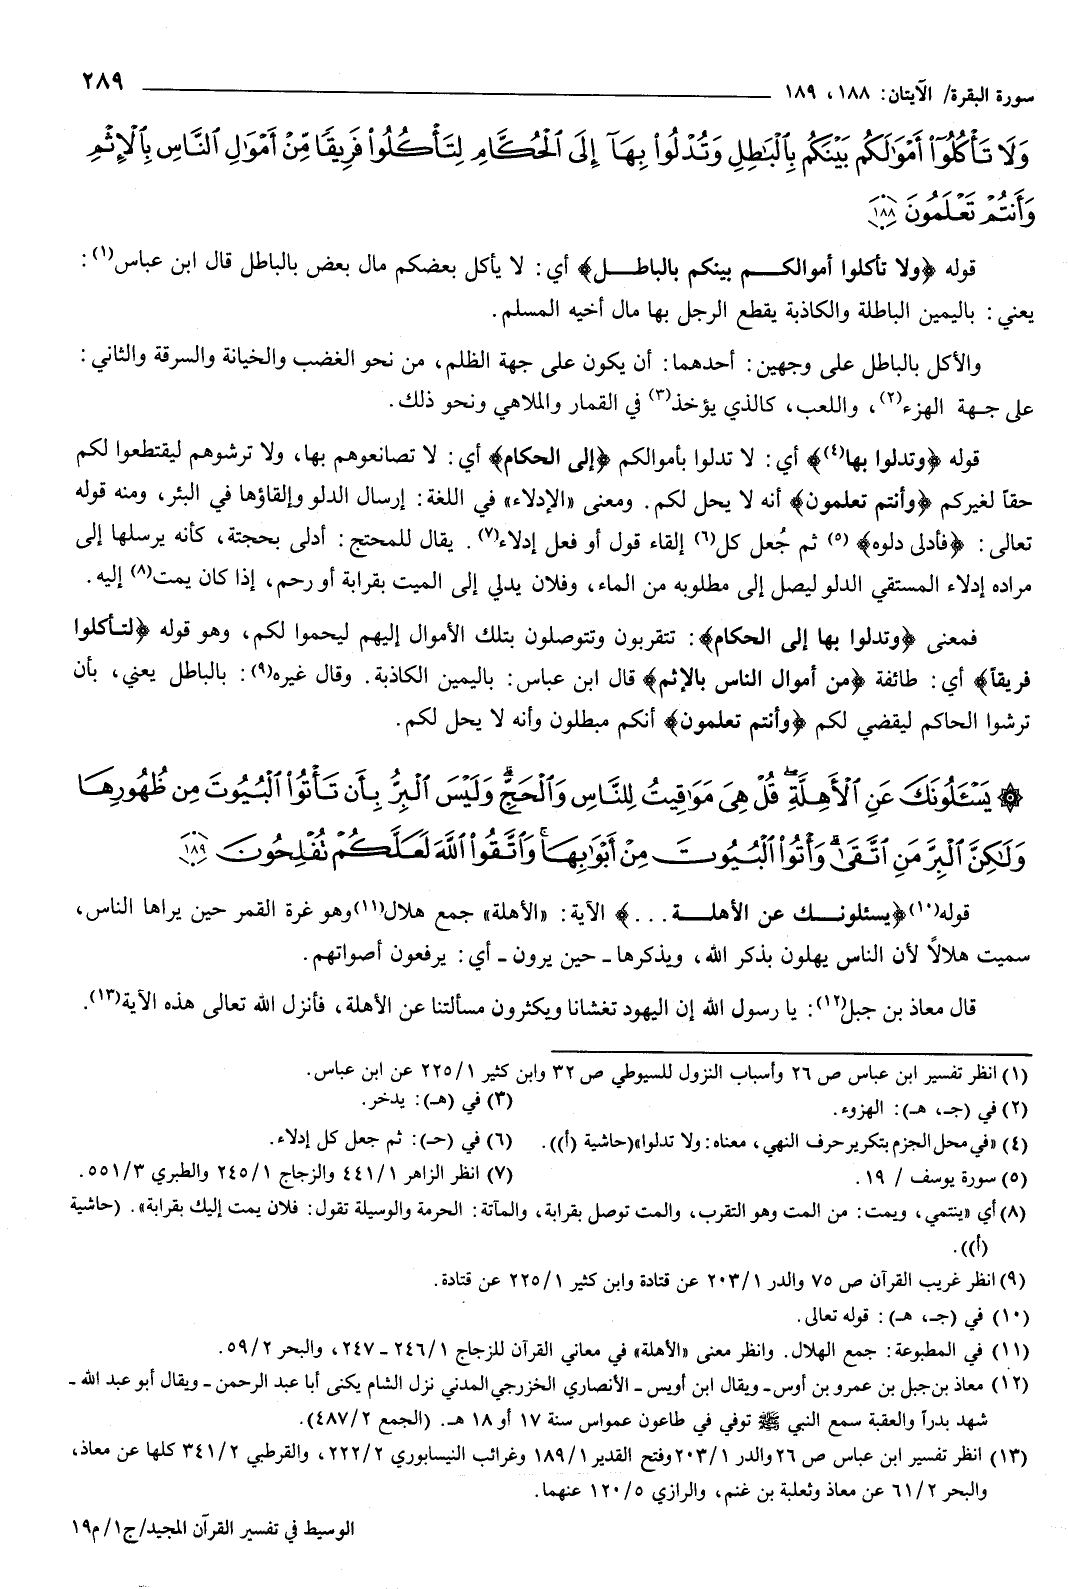 سورة البقرة/ الآيتان: ١٨٨، ١٨٩ ٢٨٩
وَلَا تَأْكُلُوٓا۟ أَمْوَٰلَكُم بَيْنَكُم بِٱلْبَٰطِلِ وَتُدْلُوا۟ بِهَآ إِلَى ٱلْحُكَّامِ لِتَأْكُلُوا۟ فَرِيقًا مِّنْ أَمْوَٰلِ ٱلنَّاسِ بِٱلْإِثْمِ
وَأَنتُمْ تَعْلَمُونَ ١٨٨
قوله ﴿ولا تأكلوا أموالكم بينكم بالباطل﴾ أي: لا يأكل بعضكم مال بعض بالباطل قال ابن عباس(١):
يعني: باليمين الباطلة والكاذبة يقطع الرجل بها مال أخيه المسلم.
والأكل بالباطل على وجهين: أحدهما: أن يكون على جهة الظلم، من نحو الغضب والخيانة والسرقة والثاني:
على جهة الهزء(٢)، واللعب، كالذي يؤخذ(٣) في القمار والملاهي ونحو ذلك.
قوله ﴿وتدلوا بها(٤)﴾ أي: لا تدلوا بأموالكم ﴿إلى الحكام﴾ أي: لا تصانعوهم بها، ولا ترشوهم ليقتطعوا لكم
حقاً لغيركم ﴿وأنتم تعلمون﴾ أنه لا يحل لكم. ومعنى «الإدلاء» في اللغة: إرسال الدلو وإلقاؤها في البئر، ومنه قوله
تعالى: ﴿فأدلى دلوه﴾ (٥) ثم جُعل كل(٦) إلقاء قول أو فعل إدلاء(٧). يقال للمحتج: أدلى بحجتة، كأنه يرسلها إلى
مراده إدلاء المستقي الدلو ليصل إلى مطلوبه من الماء، وفلان يدلي إلى الميت بقرابة أو رحم، إذا كان يمت(٨) إليه.
فمعنى ﴿وتدلوا بها إلى الحكام﴾: تتقربون وتتوصلون بتلك الأموال إليهم ليحموا لكم، وهو قوله ﴿لتأكلوا
فريقاً﴾ أي: طائفة ﴿من أموال الناس بالإثم﴾ قال ابن عباس: باليمين الكاذبة. وقال غيره(٩): بالباطل يعني، بأن
ترشوا الحاكم ليقضي لكم ﴿وأنتم تعلمون﴾ أنكم مبطلون وأنه لا يحل لكم.
۞ يَسْـَٔلُونَكَ عَنِ ٱلْأَهِلَّةِ ۖ قُلْ هِىَ مَوَٰقِيتُ لِلنَّاسِ وَٱلْحَجِّ ۗ وَلَيْسَ ٱلْبِرُّ بِأَن تَأْتُوا۟ ٱلْبُيُوتَ مِن ظُهُورِهَا
وَلَٰكِنَّ ٱلْبِرَّ مَنِ ٱتَّقَىٰ ۗ وَأْتُوا۟ ٱلْبُيُوتَ مِنْ أَبْوَٰبِهَا ۚ وَٱتَّقُوا۟ ٱللَّهَ لَعَلَّكُمْ تُفْلِحُونَ ١٨٩
قوله(١٠) ﴿يسئلونك عن الأهلة...﴾ الآية: «الأهلة» جمع هلال(١١) وهو غرة القمر حين يراها الناس،
سميت هلالاً لأن الناس يهلون بذكر الله، ويذكرها ـ حين يرون ـ أي: يرفعون أصواتهم.
قال معاذ بن جبل(١٢): يا رسول الله إن اليهود تغشانا ويكثرون مسألتنا عن الأهلة، فأنزل الله تعالى هذه الآية(١٣).
(١) انظر تفسير ابن عباس ص ٢٦ وأسباب النزول للسيوطي ص ٣٢ وابن كثير ١/ ٢٢٥ عن ابن عباس.
(٢) في (جـ، هـ): الهزوء. (٣) في (هـ): يدخر.
(٤) «في محل الجزم بتكرير حرف النهي، معناه: ولا تدلوا» (حاشية (أ)). (٦) في (حـ): ثم جعل كل إدلاء.
(٥) سورة يوسف / ١٩. (٧) انظر الزاهر ١/ ٤٤١ والزجاج ١/ ٢٤٥ والطبري ٣/ ٥٥١.
(٨) أي «ينتمي، ويمت: من المت وهو التقرب، والمت توصل بقرابة، والمآتة: الحرمة والوسيلة تقول: فلان يمت إليك بقرابة». (حاشية
(أ)).
(٩) انظر غريب القرآن ص ٧٥ والدر ١/ ٢٠٣ عن قتادة وابن كثير ١/ ٢٢٥ عن قتادة.
(١٠) في (جـ، هـ): قوله تعالى.
(١١) في المطبوعة: جمع الهلال. وانظر معنى «الأهلة» في معاني القرآن للزجاج ١/ ٢٤٦ ـ ٢٤٧، والبحر ٢/ ٥٩.
(١٢) معاذ بن جبل بن عمرو بن أوس ـ ويقال ابن أويس ـ الأنصاري الخزرجي المدني نزل الشام يكنى أبا عبد الرحمن ـ ويقال أبو عبد الله ـ
شهد بدراً والعقبة سمع النبي ﷺ توفي في طاعون عمواس سنة ١٧ أو ١٨ هـ. (الجمع ٢/ ٤٨٧).
(١٣) انظر تفسير ابن عباس ص ٢٦ والدر ١/ ٢٠٣ وفتح القدير ١/ ١٨٩ وغرائب النيسابوري ٢/ ٢٢٢، والقرطبي ٢/ ٣٤١ كلها عن معاذ،
والبحر ٢/ ٦١ عن معاذ وثعلبة بن غنم، والرازي ٥/ ١٢٠ عنهما.
الوسيط في تفسير القرآن المجيد/ ج١/ م١٩